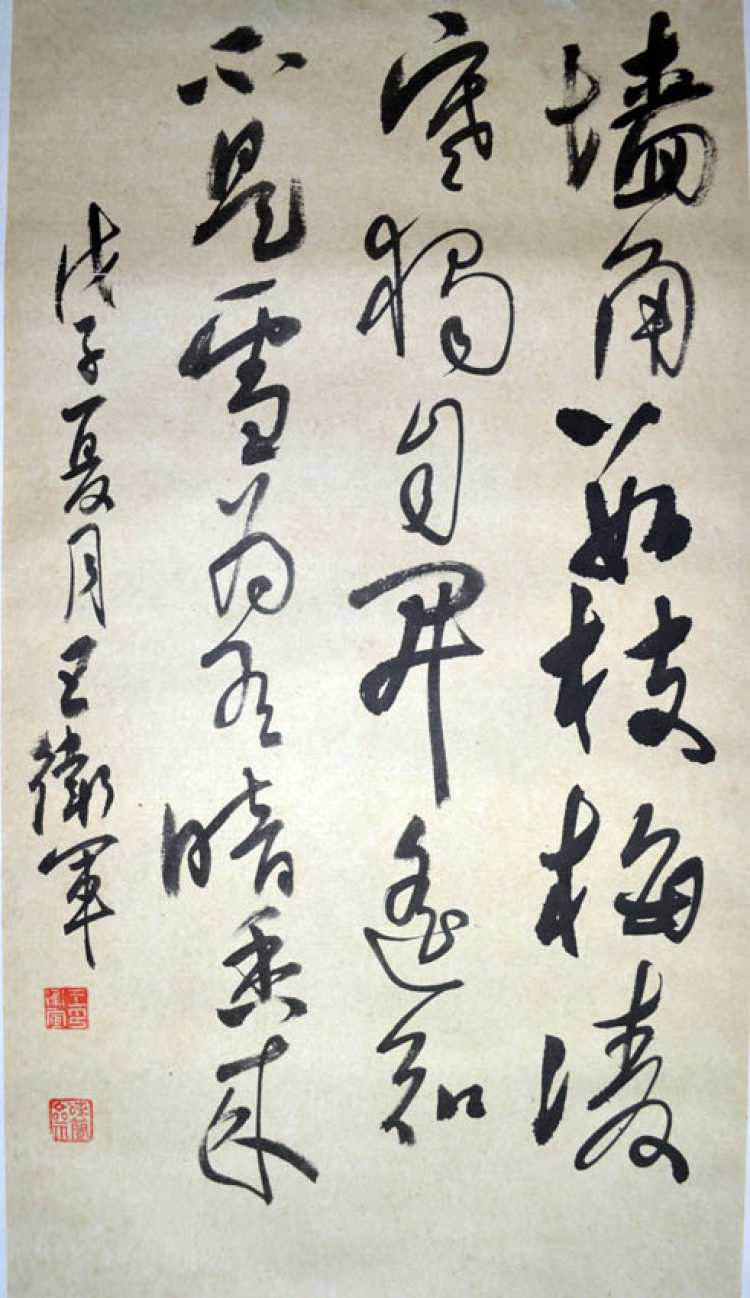 墙角数枝梅凌
寒独自开遥知
不是雪为有暗香来
戊子夏月王衛軍